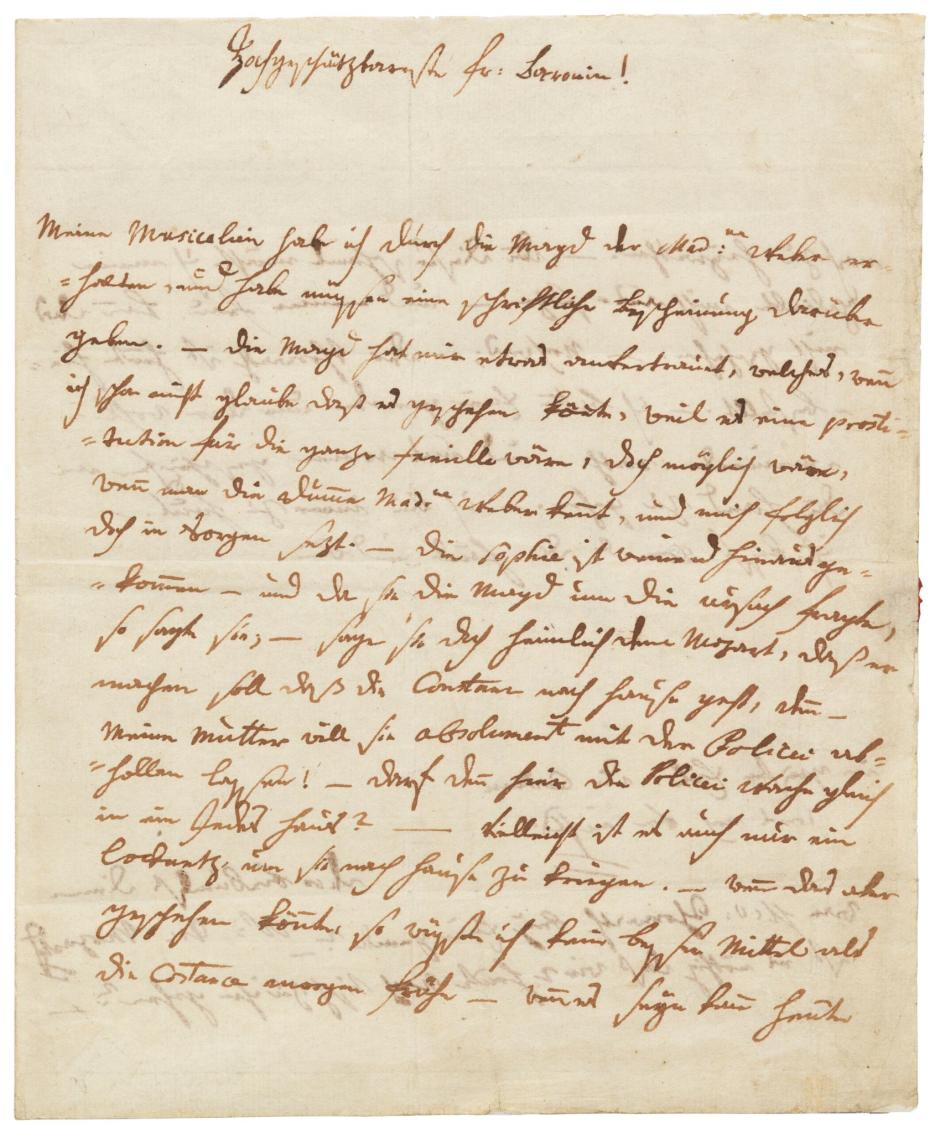 Hochgeschätzbareste fr: Baronin!
Meine Musicalien habe ich durch die Magd der Mad:me Weber er-
=halten, und habe müssen eine schriftliche Bescheinung darüber
geben. — die Magd hat mir etwas anvertrauet, welches, wenn
ich schon nicht glaube daß es geschehen könnte, weil es eine prosti-
=tution für die ganze familie wäre, doch möglich wäre,
wenn man die dumme Mad:me Weber kennt, und mich folglich
doch in Sorgen setzt. — die Sophie ist weinend hinausge=
=kommen — und da sie die Magd um die ursach fragte,
so sagte sie; — sage sie doch heimlich dem Mozart, daß er
machen soll daß die Constanz nach hause geht, denn —
meine Mutter will sie absolument mit der Policei ab=
=hollen lassen! — darf denn hier die Policei Wache gleich
in ein Jedes haus? — Vielleicht ist es auch nur ein
locknetz, um sie nach hause zu kriegen. — wenn das aber
geschehen könnte, so wüsste ich kein besser Mittel als
die Costance morgen frühe — wenn es seyn kann heute